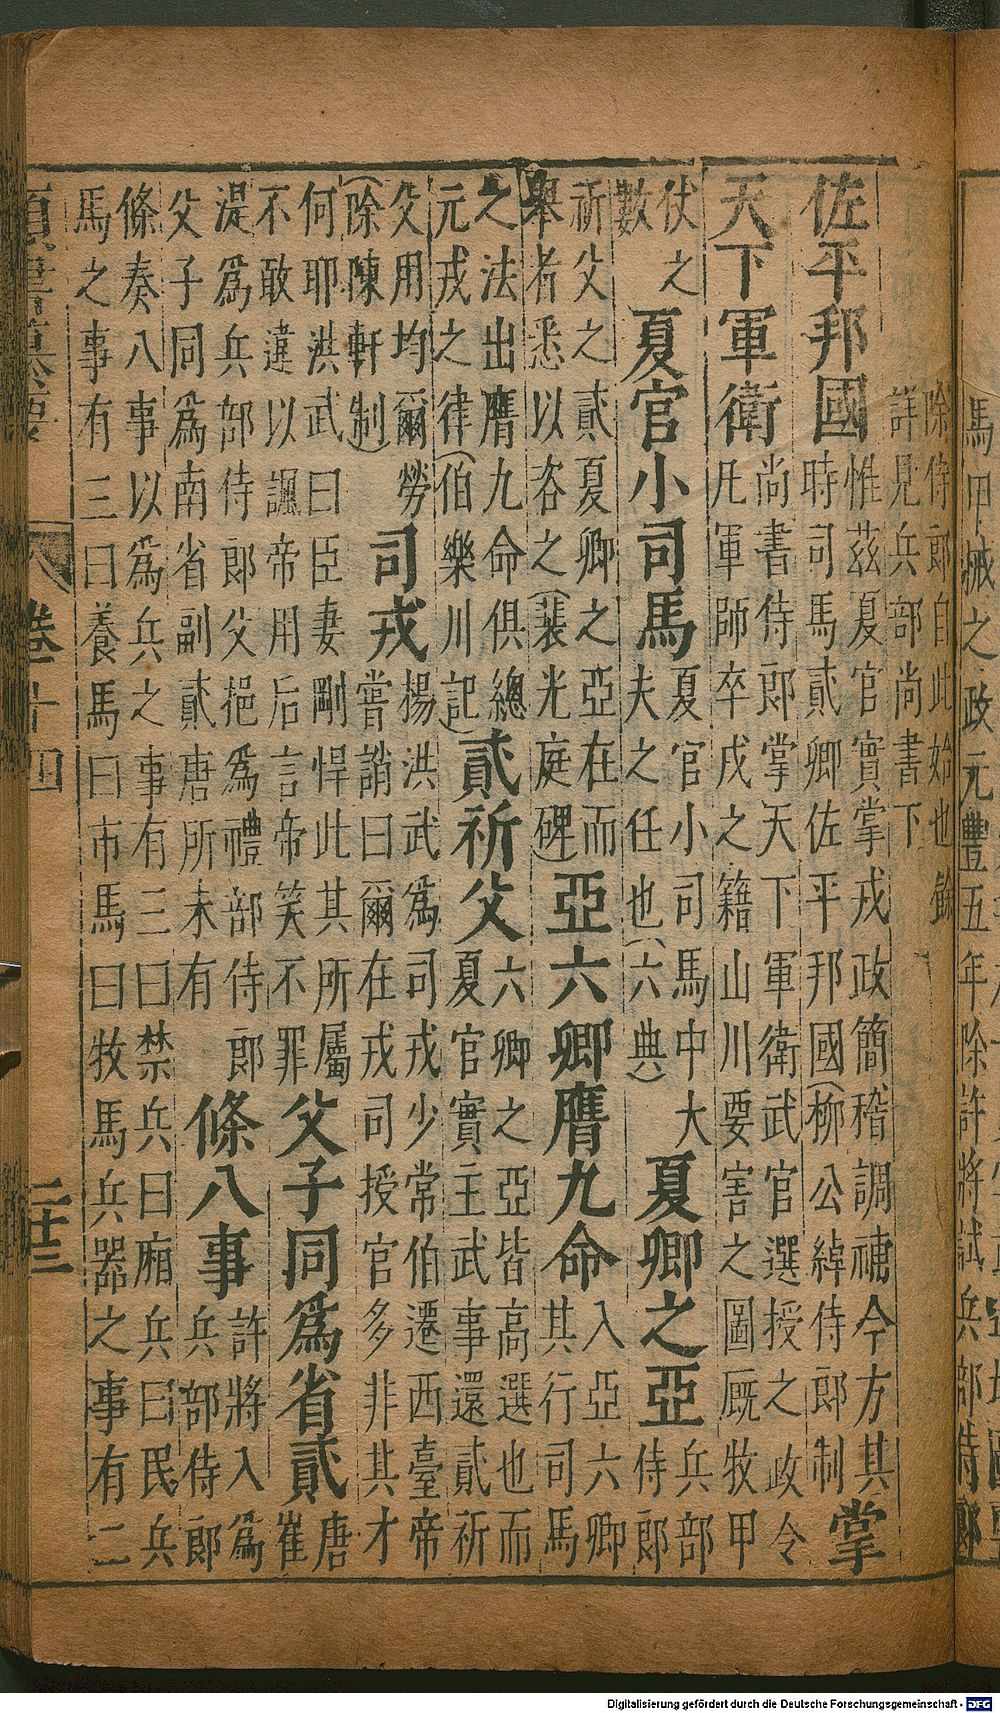 馬甲械之政元豐五年除許將試兵部侍郎
除侍郎自此始也餘
詳見兵部尚書下
佐平邦國
惟茲夏官實掌戎政簡稽調補今方其
時司馬貳卿佐平邦國(柳公綽侍郎制
掌
天下軍衛
尚書侍郎掌天下軍衛武官選授之政令
凡軍師卒戍之籍山川要害之圖厩牧甲
仗之
數
夏官小司馬
夏官小司馬中大
夫之任也(六典)
夏卿之亞
兵部
侍郎
祈父之貳夏卿之亞在而
舉者悉以咨之(裴光庭碑)
亞六卿膺九命
入亞六卿
其行司馬
之法出膺九命俱總
元戎之律(伯樂川記)
貳祈父
六卿之亞皆高選也而
夏官實主武事還貳祈
父用均爾勞
(除陳軒制)
司戎
楊洪武為司戎少常伯遷西臺帝
嘗誚曰爾在戎司授官多非其才
何耶洪武曰臣妻剛悍此其所屬
不敢違以諷帝用后言帝笑不罪
父子同爲省貳
唐
崔
湜爲兵部侍郎父挹爲禮部侍郎
父子同爲南省副貳唐所未有
條八事
許將入爲
兵部侍郎
條奏八事以爲兵之事有三曰禁兵曰廂兵曰民兵
馬之事有三曰養馬曰市馬曰牧馬兵器之事有二
卷 十四
Digitalisierung gefördert durch die Deutsche Forschungsgemeinschaft - DFG